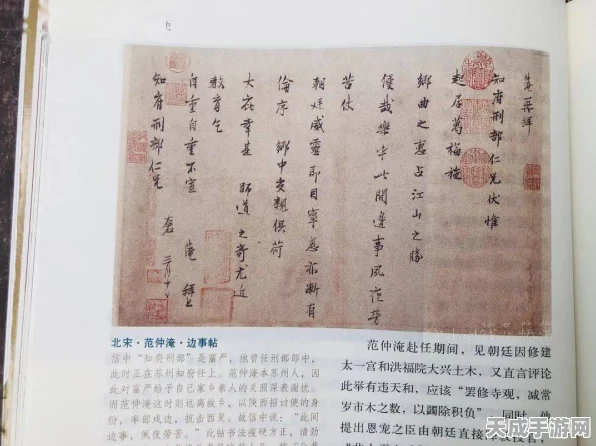 淹再拜
知府刑部仁兄伏惟
起居万福施
乡曲之惠占江山之胜
优哉乐乎此间边事夙夜劳
苦仗
朝廷威灵即目宁息亦渐有
伦序乡中交亲俱荷
大庇幸甚师道之奇尤近
教育乞
自重自重不宣淹拜上
知府刑部仁兄
三月十
北宋·范仲淹·边事帖
信中“知府刑部”是富严，他曾任刑部郎中，
此时正在苏州知府任上。范仲淹本苏州人，因
此对富严给予自己家乡亲人的关照深表谢忱。
而范仲淹这时则远离故乡，以陕西招讨使的身
份，率部戍边，抗击西夏。故信中说：“此间
边事，夙夜劳苦。”此帖书法瘦硬方正，清劲
范仲淹赴任期间，见朝廷因修建
太一宫和洪福院大兴土木，又直言评论
此举有违天和，应该“罢修寺观，减常
岁市木之数，以蠲除积负”。同时，他
提出恩宠之臣由朝廷直接
天成手游网